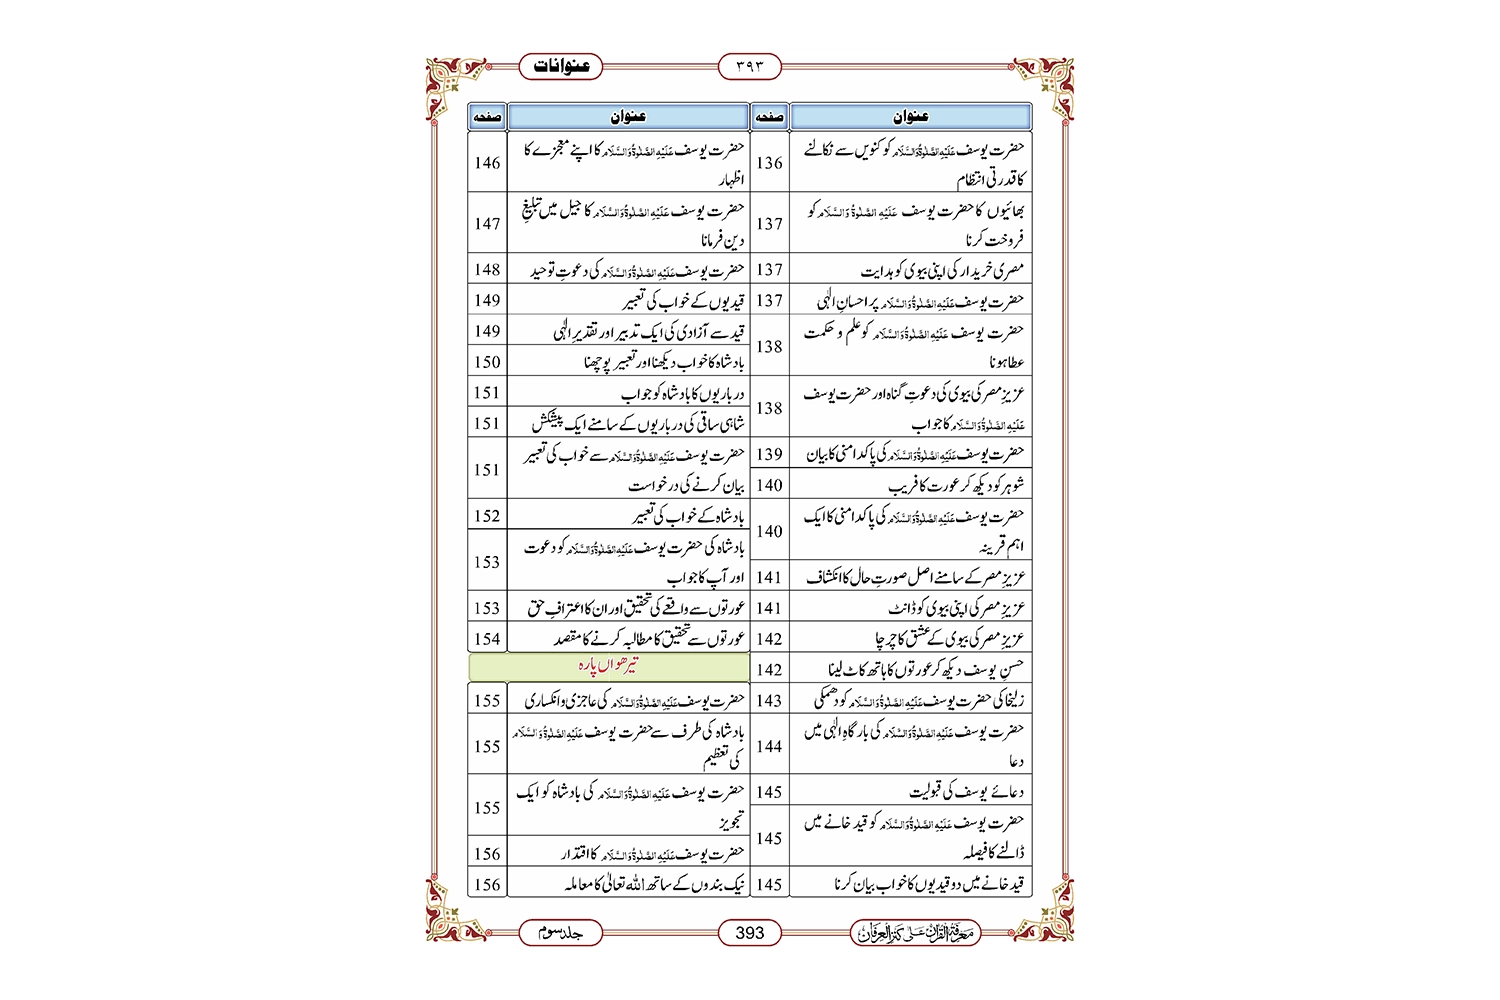 عنوانات
۳۹۳
عنوان صفحہ
حضرت یوسف عَلَیْہِ الصَّلٰوۃُ وَالسَّلَام کو کنویں سے نکالنے
کا قدرتی انتظام 136
بھائیوں کا حضرت یوسف عَلَیْہِ الصَّلٰوۃُ وَالسَّلَام کو
فروخت کرنا 137
مصری خریدار کی اپنی بیوی کو ہدایت 137
حضرت یوسف عَلَیْہِ الصَّلٰوۃُ وَالسَّلَام پر احسانِ الٰہی 137
حضرت یوسف عَلَیْہِ الصَّلٰوۃُ وَالسَّلَام کو علم و حکمت
عطا ہونا 138
عزیزِ مصر کی بیوی کی دعوتِ گناہ اور حضرت یوسف
عَلَیْہِ الصَّلٰوۃُ وَالسَّلَام کا جواب 138
حضرت یوسف عَلَیْہِ الصَّلٰوۃُ وَالسَّلَام کی پاکدامنی کا بیان 139
شوہر کو دیکھ کر عورت کا فریب 140
حضرت یوسف عَلَیْہِ الصَّلٰوۃُ وَالسَّلَام کی پاکدامنی کا ایک
اہم قرینہ 140
عزیزِ مصر کے سامنے اصل صورتِ حال کا انکشاف 141
عزیزِ مصر کی اپنی بیوی کو ڈانٹ 141
عزیزِ مصر کی بیوی کے عشق کا چرچا 142
حسنِ یوسف دیکھ کر عورتوں کا ہاتھ کاٹ لینا 142
زلیخا کی حضرت یوسف عَلَیْہِ الصَّلٰوۃُ وَالسَّلَام کو دھمکی 143
حضرت یوسف عَلَیْہِ الصَّلٰوۃُ وَالسَّلَام کی بارگاہِ الٰہی میں
دعا 144
دعائے یوسف کی قبولیت 145
حضرت یوسف عَلَیْہِ الصَّلٰوۃُ وَالسَّلَام کو قید خانے میں
ڈالنے کا فیصلہ 145
قید خانے میں دو قیدیوں کا خواب بیان کرنا 145
عنوان صفحہ
حضرت یوسف عَلَیْہِ الصَّلٰوۃُ وَالسَّلَام کا اپنے معجزے کا
اظہار 146
حضرت یوسف عَلَیْہِ الصَّلٰوۃُ وَالسَّلَام کا جیل میں تبلیغِ
دین فرمانا 147
حضرت یوسف عَلَیْہِ الصَّلٰوۃُ وَالسَّلَام کی دعوتِ توحید 148
قیدیوں کے خواب کی تعبیر 149
قید سے آزادی کی ایک تدبیر اور تقدیرِ الٰہی 149
بادشاہ کا خواب دیکھنا اور تعبیر پوچھنا 150
درباریوں کا بادشاہ کو جواب 151
شاہی ساقی کی درباریوں کے سامنے ایک پیشکش 151
حضرت یوسف عَلَیْہِ الصَّلٰوۃُ وَالسَّلَام سے خواب کی تعبیر
بیان کرنے کی درخواست 151
بادشاہ کے خواب کی تعبیر 152
بادشاہ کی حضرت یوسف عَلَیْہِ الصَّلٰوۃُ وَالسَّلَام کو دعوت
اور آپ کا جواب 153
عورتوں سے واقعے کی تحقیق اور ان کا اعترافِ حق 153
عورتوں سے تحقیق کا مطالبہ کرنے کا مقصد 154
تیرھواں پارہ
حضرت یوسف عَلَیْہِ الصَّلٰوۃُ وَالسَّلَام کی عاجزی و انکساری 155
بادشاہ کی طرف سے حضرت یوسف عَلَیْہِ الصَّلٰوۃُ وَالسَّلَام
کی تعظیم 155
حضرت یوسف عَلَیْہِ الصَّلٰوۃُ وَالسَّلَام کی بادشاہ کو ایک
تجویز 155
حضرت یوسف عَلَیْہِ الصَّلٰوۃُ وَالسَّلَام کا اقتدار 156
نیک بندوں کے ساتھ اللہ تعالیٰ کا معاملہ 156
معرفۃ القرآن علی کنز العرفان
393
جلد سوم